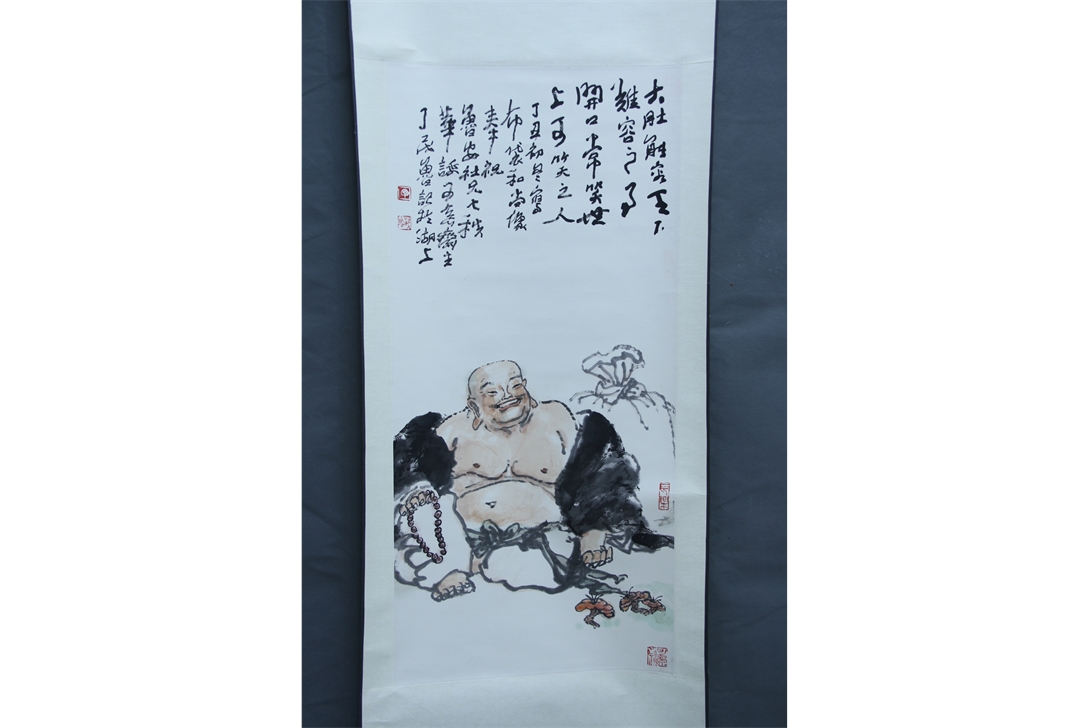 大肚能容天下
難容之事
開口常笑世
上可笑之人
丁丑初冬寫
布袋和尚像
奉祝
魯安社兄七秩
華誕可意齋主
丁茂魯記於湖上